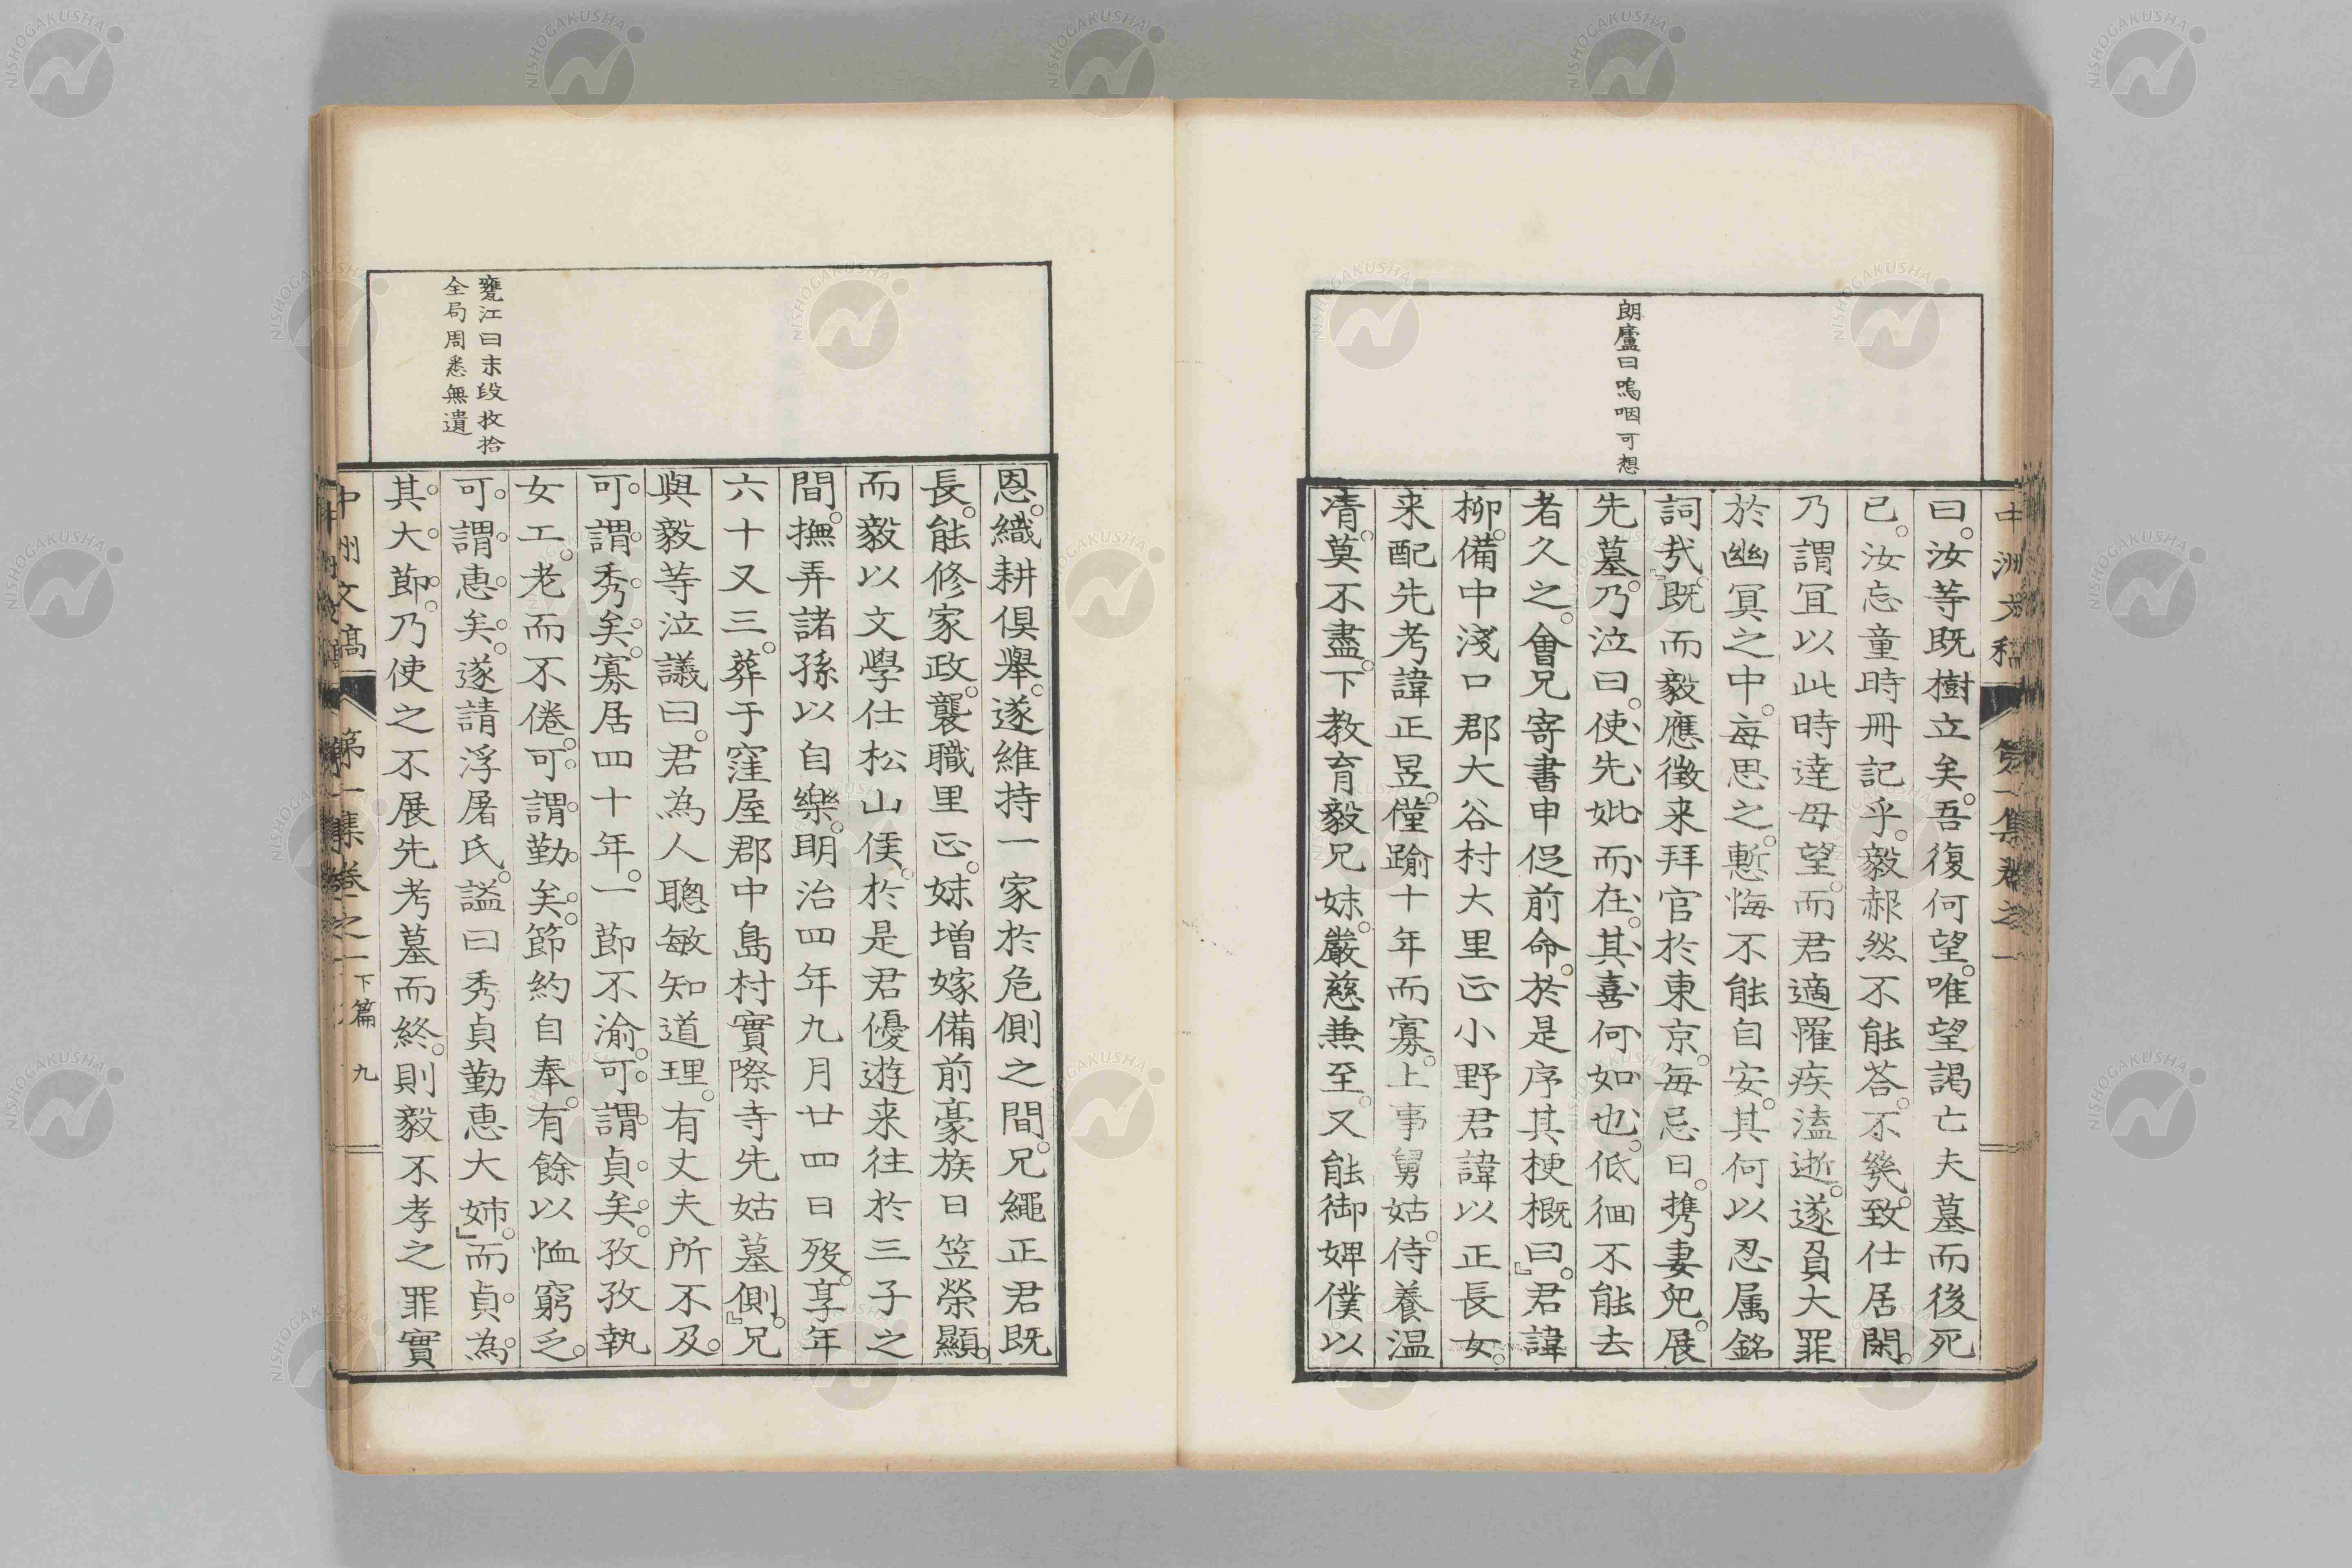 朗廬曰嗚咽可想
曰。汝等既樹立矣。吾復何望。唯望謁亡夫墓而後死
已。汝忘童時冊記乎。毅赧然不能荅。不幾。致仕居閑。
乃謂宜以此時達母望。而君適罹疾溘逝。遂負大罪
於幽冥之中。每思之。慙悔不能自安。其何以忍属銘
詞㢤。』既而毅應徴来拜官於東京。每忌日。携妻兒。展
先墓。乃泣曰。使先妣而在。其喜何如也。低徊不能去
者久之。會兄寄書申促前命。於是序其梗概曰。』君諱
柳。備中淺口郡大谷村大里正小野君諱以正長女。
来配先考諱正昱。僅踰十年而寡。上事舅姑。侍養温
凊。莫不盡。下教育毅兄妹。嚴慈兼至。又能御婢僕以
中洲文稿 第一集卷之一
甕江曰末段收拾
全局周悉無遺
恩。織耕俱舉。遂維持一家於危側之間。兄繩正君既
長。能修家政。襲職里正。妹増嫁備前豪族日笠榮顯。
而毅以文學仕松山侯。於是君優遊来往於三子之
間。撫弄諸孫以自樂。明治四年九月廿四日歿。享年
六十又三。葬于窪屋郡中島村實際寺先姑墓側。』兄
與毅等泣議曰。君為人聰敏知道理。有丈夫所不及。
可謂秀矣。寡居四十年。一節不渝。可謂貞矣。孜孜執
女工。老而不倦。可謂勤矣。節約自奉。有餘以恤窮乏。
可謂恵矣。遂請浮屠氏。謚曰秀貞勤恵大姉。』而貞為
其大節。乃使之不展先考墓而終。則毅不孝之罪實
中洲文稿 第一集卷之一 下篇 九
NISHOGAKUSHA